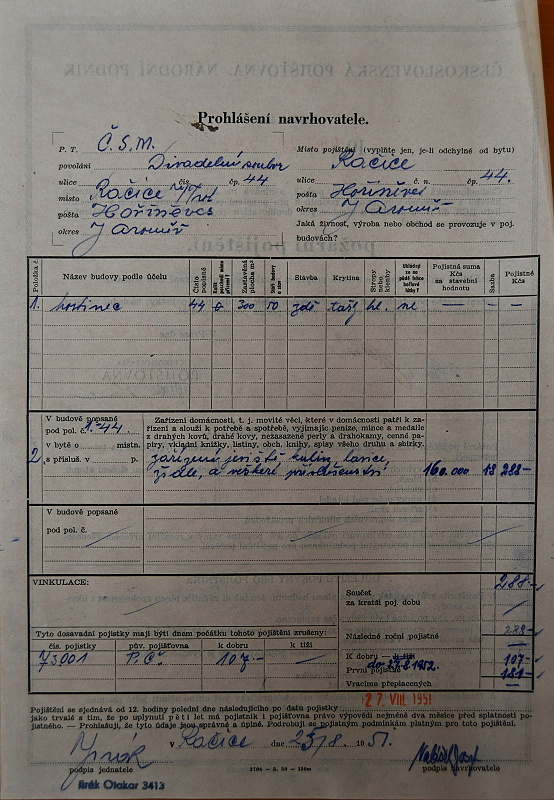 Prohlášení navrhovatele.
P. T. Č.S.M.
povolání Divadelní soubor
ulice čís. čp. 44
místo Račice n/Trot
pošta Hořiněves
okres Jaroměř
Místo pojištění (vyplňte jen, je-li odchylné od bytu)
Račice
ulice č. n. čp. 44.
pošta Hořiněves
okres Jaroměř
Jaká živnost, výroba nebo obchod se provozuje v poj.
budovách?
Položka č. Název budovy podle účelu Číslo popisné Zastavěná plocha m² Stavba Krytina Stropy nebo klenby Pojistná suma Kčs za stavební hodnotu Sazba Pojistné Kčs
1. hostinec 44 300 50 zdě tašk ne — — —
V budově popsané
pod pol. č. 1.-44
v bytě o místn.
s přísluš. v p.
Zařízení domácnosti, t. j. movité věci, které v domácnosti patří k za-
řízení a slouží k potřebě a spotřebě, vyjímajíc peníze, mince a medaile
z drahých kovů, drahé kovy, nezasazené perly a drahokamy, cenné pa-
píry, vkladní knížky, listiny, obch. knihy, spisy všeho druhu a sbírky.
2. zařízení jeviště kulisy, lavice,
židle, a veškeré příslušenství 160.000 18 288-
V budově popsané
pod pol. č.
VINKULACE:
Součet 288-
za kratší poj. dobu
Následné roční pojistné 288-
Tyto dosavadní pojistky mají býti dnem počátku tohoto pojištění zrušeny:
čís. pojistky pův. pojišťovna k dobru k tíži
73001 P.Č. 107-
K dobru — k tíži 107-
První pojistné do 27.8.1952. 181-
Vracíme přeplacených —
27. VIII. 1951
Pojištění se sjednává od 12. hodiny polední dne následujícího po datu pojistky
jako trvalé s tím, že po uplynutí pěti let má pojistník i pojišťovna právo výpovědi nejméně dva měsíce před splatností po-
jistného. — Prohlašuji, že tyto údaje jsou správné a úplné. Podrobuji se pojistným podmínkám platným pro toto pojištění.
v Račice dne 25/8. 1951.
Jirák
podpis jednatele
podpis navrhovatele
Jirák Otakar 3413